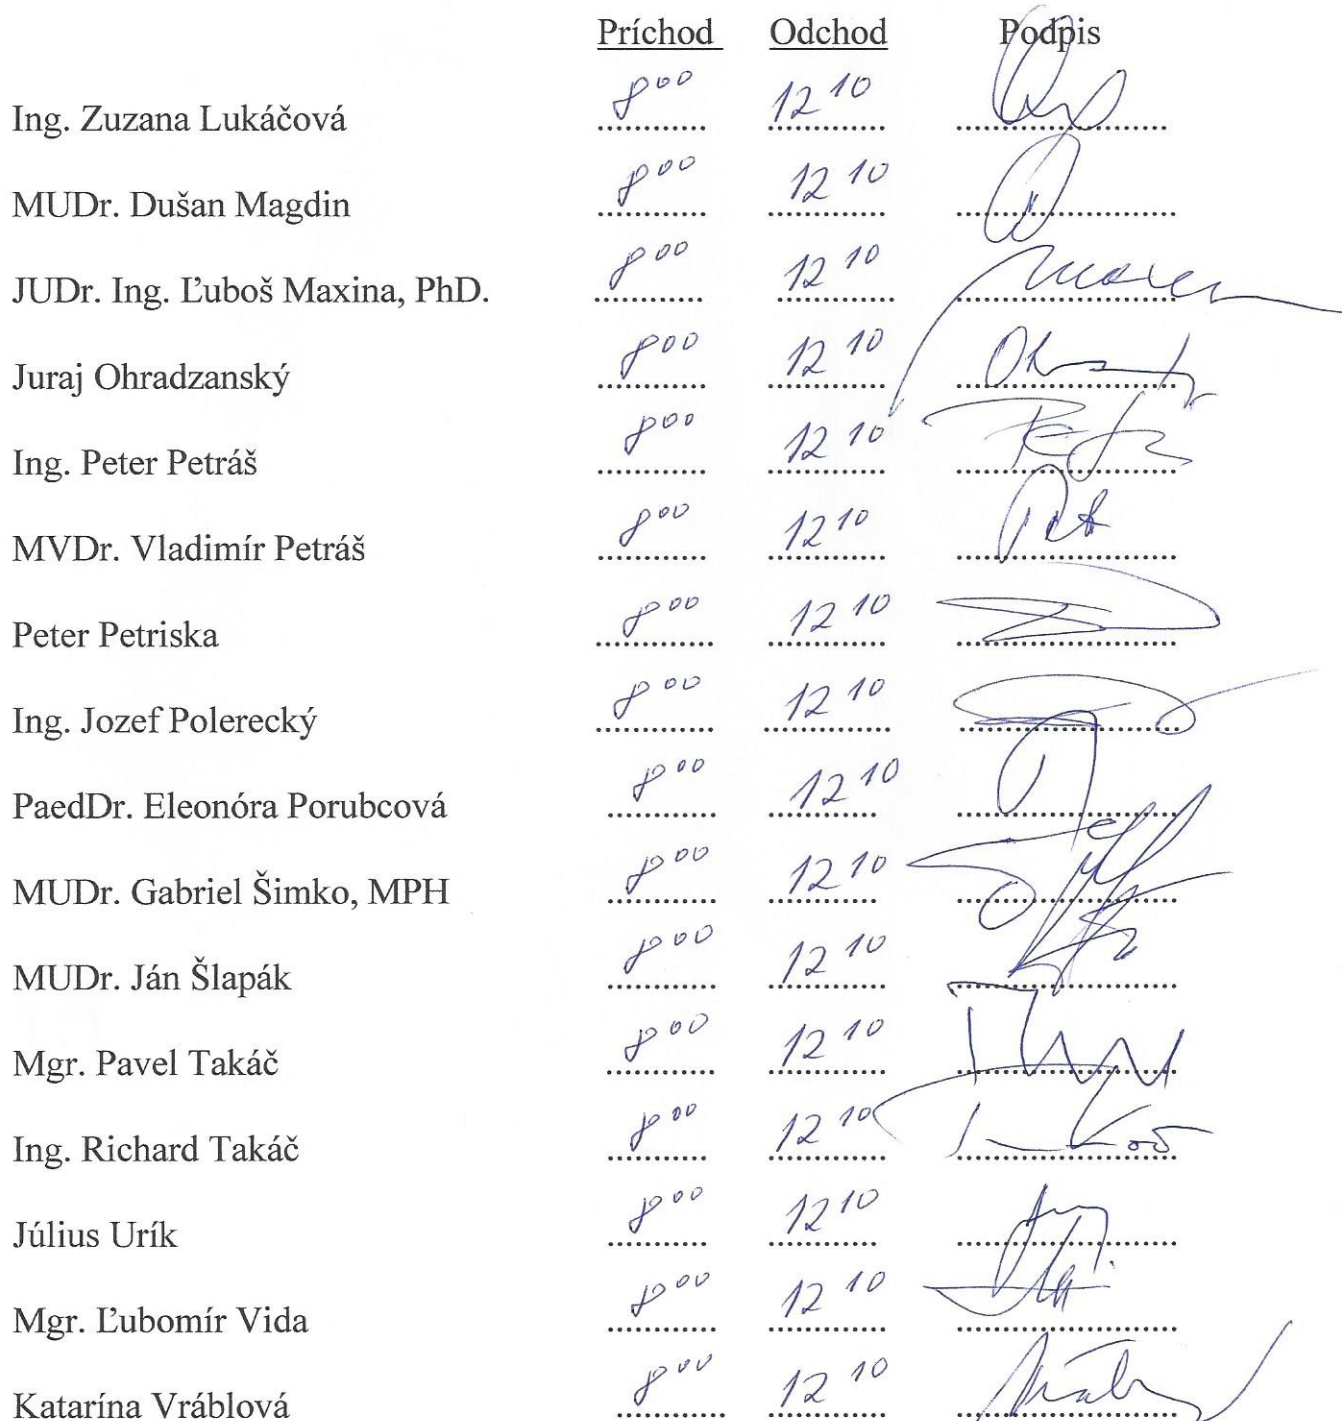 Príchod Odchod Podpis
Ing. Zuzana Lukáčová 8 00 12 10
MUDr. Dušan Magdin 8 00 12 10
JUDr. Ing. Ľuboš Maxina, PhD. 8 00 12 10
Juraj Ohradzanský 8 00 12 10
Ing. Peter Petráš 8 00 12 10
MVDr. Vladimír Petráš 8 00 12 10
Peter Petriska 8 00 12 10
Ing. Jozef Polerecký 8 00 12 10
PaedDr. Eleonóra Porubcová 8 00 12 10
MUDr. Gabriel Šimko, MPH 8 00 12 10
MUDr. Ján Šlapák 8 00 12 10
Mgr. Pavel Takáč 8 00 12 10
Ing. Richard Takáč 8 00 12 10
Július Urík 8 00 12 10
Mgr. Ľubomír Vida 8 00 12 10
Katarína Vráblová 8 00 12 10